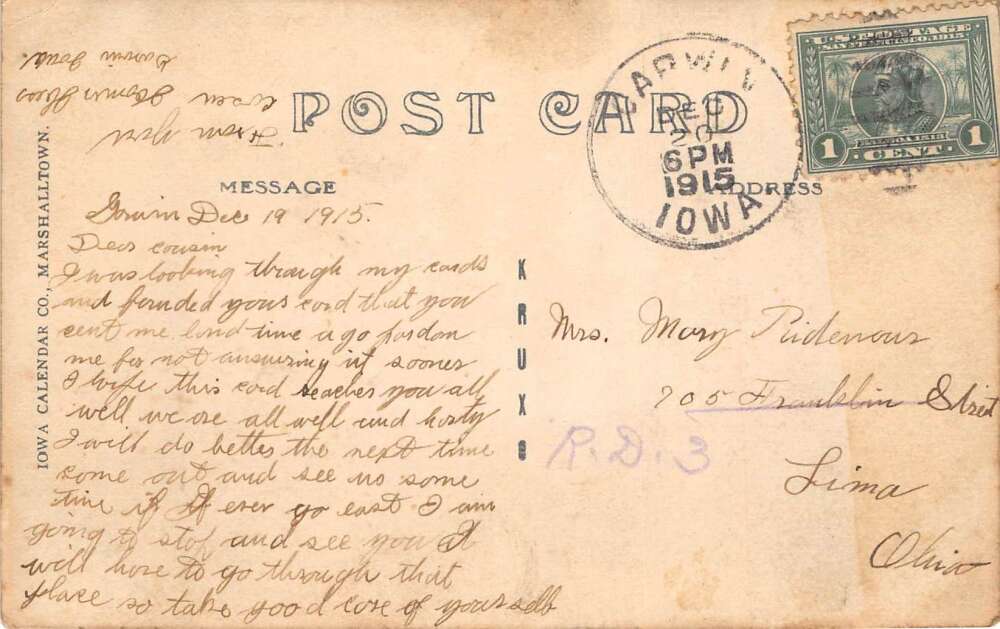 POST CARD
MESSAGE
ADDRESS
U.S. POSTAGE
SAN FRANCISCO
1 CENT 1
GARWIN
DEC
20
6 PM
1915
IOWA
Garwin Dec 19 1915.
Dear cousin
I was looking through my cards
and founded your card that you
cent me lond time ago pardon
me for not answuring it sooner
I hope this card reaches you all
well we are all well and harty
I will do better the next time
come out and see us some
time if If ever go east I am
going to stop and see you It
will have to go through that
place so take good care of yourself
From your
cusen
Garwin Iowa.
Mrs. Mary Ridenour
705 Franklin Street
R.D. 3
Lima
Ohio
KRUXO
IOWA CALENDAR CO., MARSHALLTOWN.